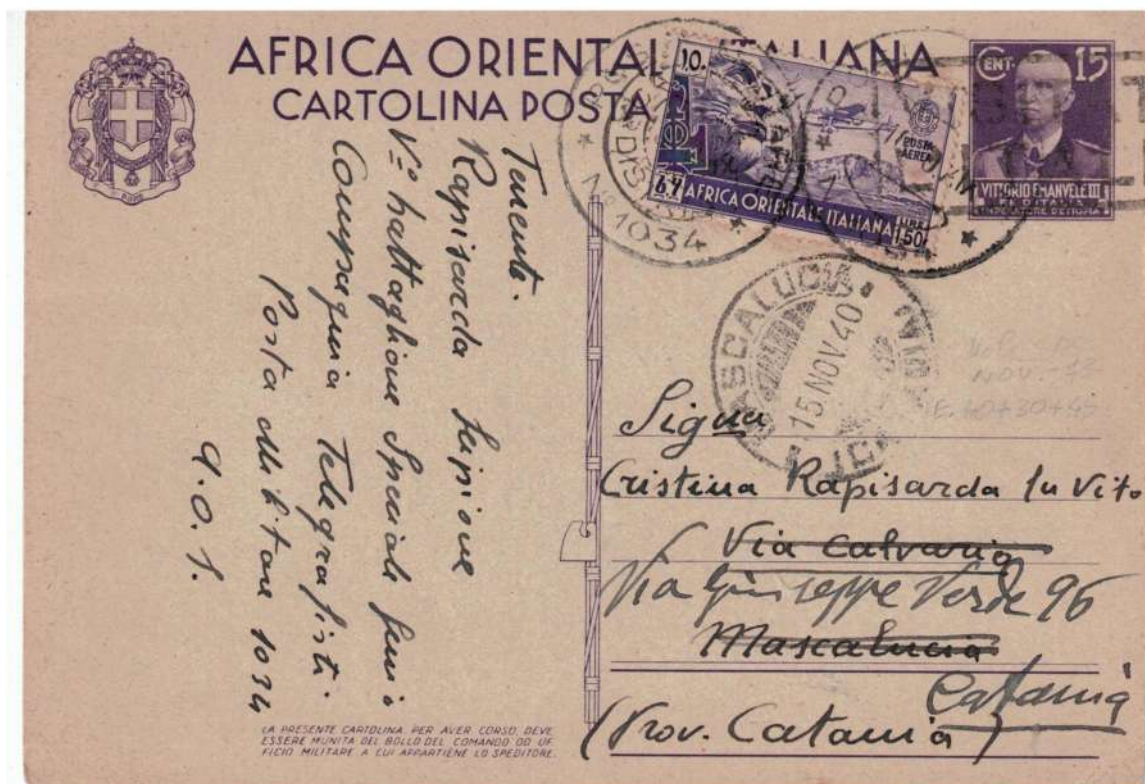 AFRICA ORIENTALE ITALIANA
CARTOLINA POSTA
CENT. 15
VITTORIO EMANVELE III
RE D'ITALIA
10.
POSTA AEREA
AFRICA ORIENTALE ITALIANA
1.50
No 1034
MASCALUCIA
15 NOV. 40
Tenente
Rapisarda Scipione
V= battaglione Speciale Genio
Compagnia Telegrafisti
Posta Militare 1034
A.O.I.
NOV.-73
E.40+30+45
Signa
Cristina Rapisarda fu Vito
Via Calvario
Via Giuseppe Verde 96
Mascalucia
Catania
(Prov. Catania)
LA PRESENTE CARTOLINA, PER AVER CORSO, DEVE
ESSERE MUNITA DEL BOLLO DEL COMANDO OD UF.
FICIO MILITARE A CUI APPARTIENE LO SPEDITORE.